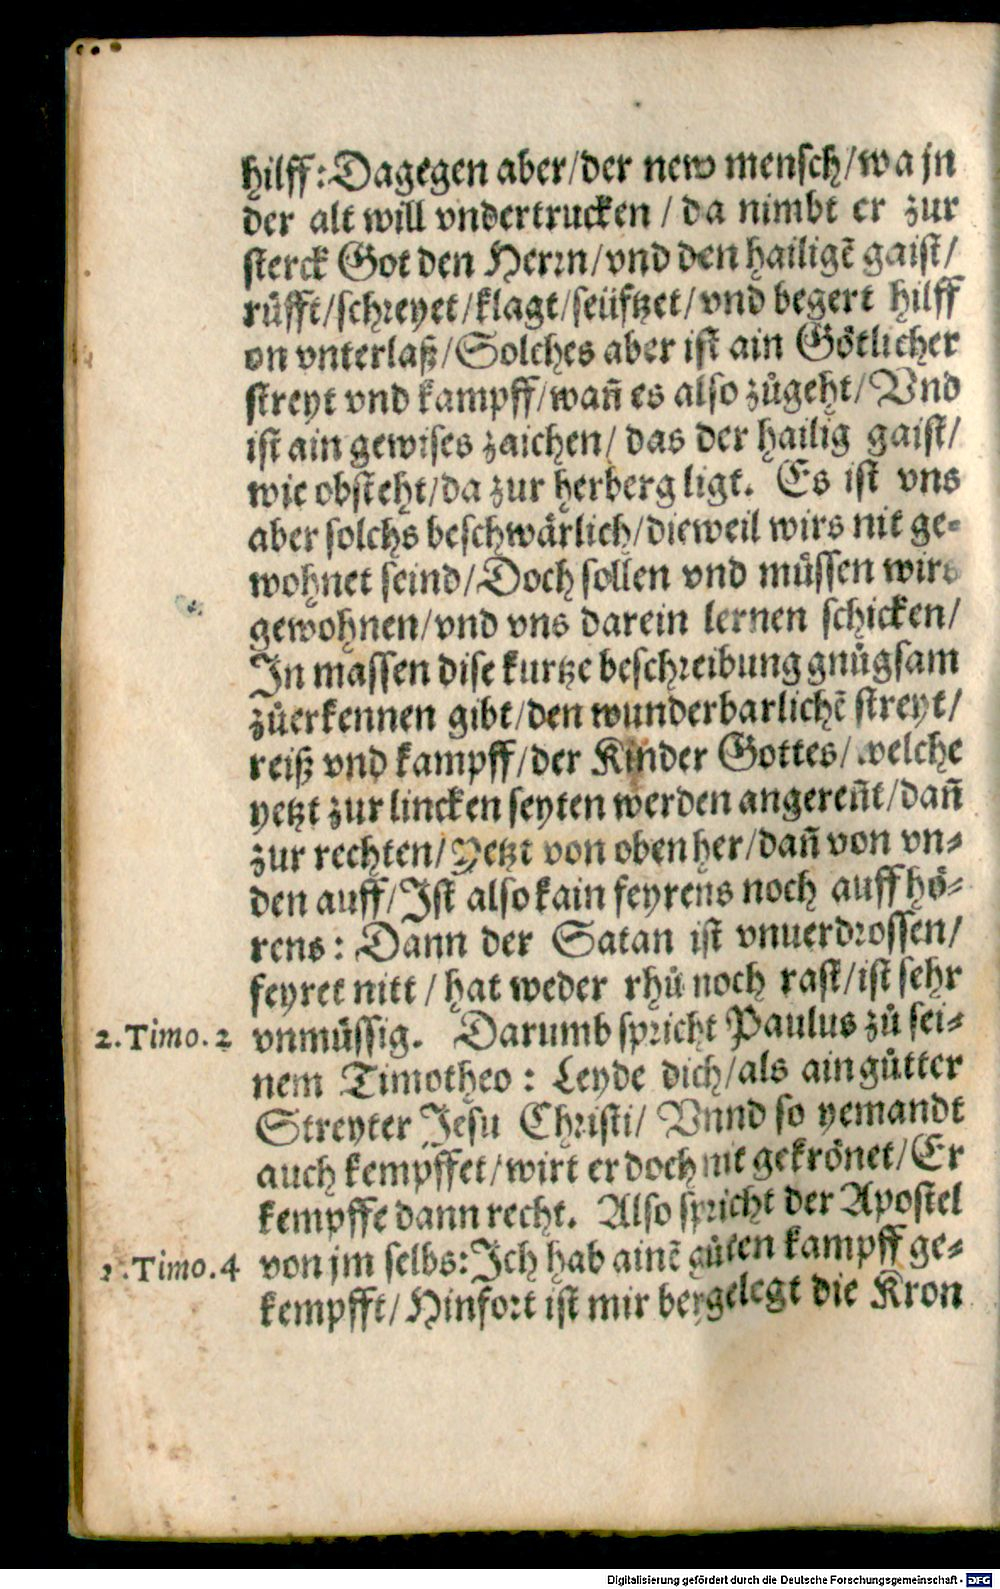 hilff: Dagegen aber/der new mensch/wa jn
der alt will vndertrucken / da nimbt er zur
sterck Got den Herrn/vnd den hailigẽ gaist/
rüfft/schreyet/klagt/seüftzet/vnd begert hilff
on vnterlaß/Solches aber ist ain Götlicher
streyt vnd kampff/wañ es also zůgeht/Vnd
ist ain gewises zaichen/ das der hailig gaist/
wie obsteht/da zur herberg ligt. Es ist vns
aber solchs beschwärlich/dieweil wirs nit ge-
wohnet seind/Doch sollen vnd müssen wirs
gewohnen/vnd vns darein lernen schicken/
In massen dise kurtze beschreibung gnůgsam
zůerkennen gibt/den wunderbarlichẽ streyt/
reiß vnd kampff/der Kinder Gottes/welche
yetzt zur lincken seyten werden angereñt/dañ
zur rechten/Yetzt von oben her/dañ von vn-
den auff/Ist also kain feyrens noch auffhö-
rens: Dann der Satan ist vnuerdrossen/
feyret nitt / hat weder rhů noch rast/ist sehr
2.Timo.2 vnmüssig. Darumb spricht Paulus zů sei-
nem Timotheo: Leyde dich/als ain gůtter
Streyter Jesu Christi/ Vnnd so yemandt
auch kempffet/wirt er doch nit gekrönet/Er
kempffe dann recht. Also spricht der Apostel
2.Timo.4 von jm selbs: Ich hab ainẽ gůten kampff ge-
kempfft/Hinfort ist mir bergelegt die Kron
Digitalisierung gefördert durch die Deutsche Forschungsgemeinschaft - DFG